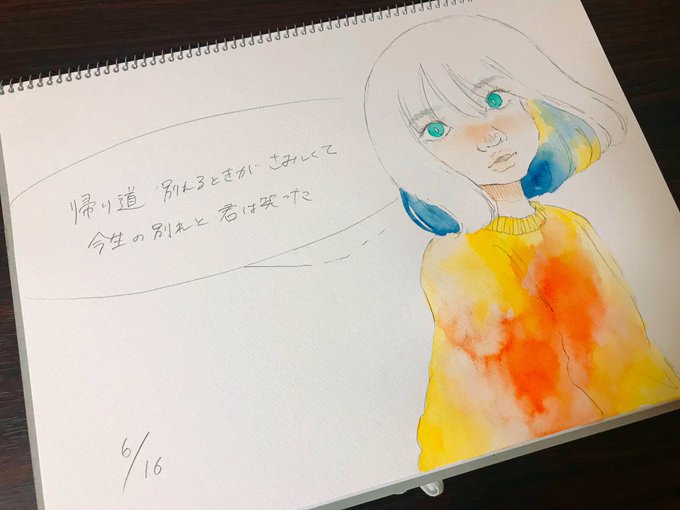 帰り道 別れるときが さみしくて
今生の別れと 君は笑った
6/16